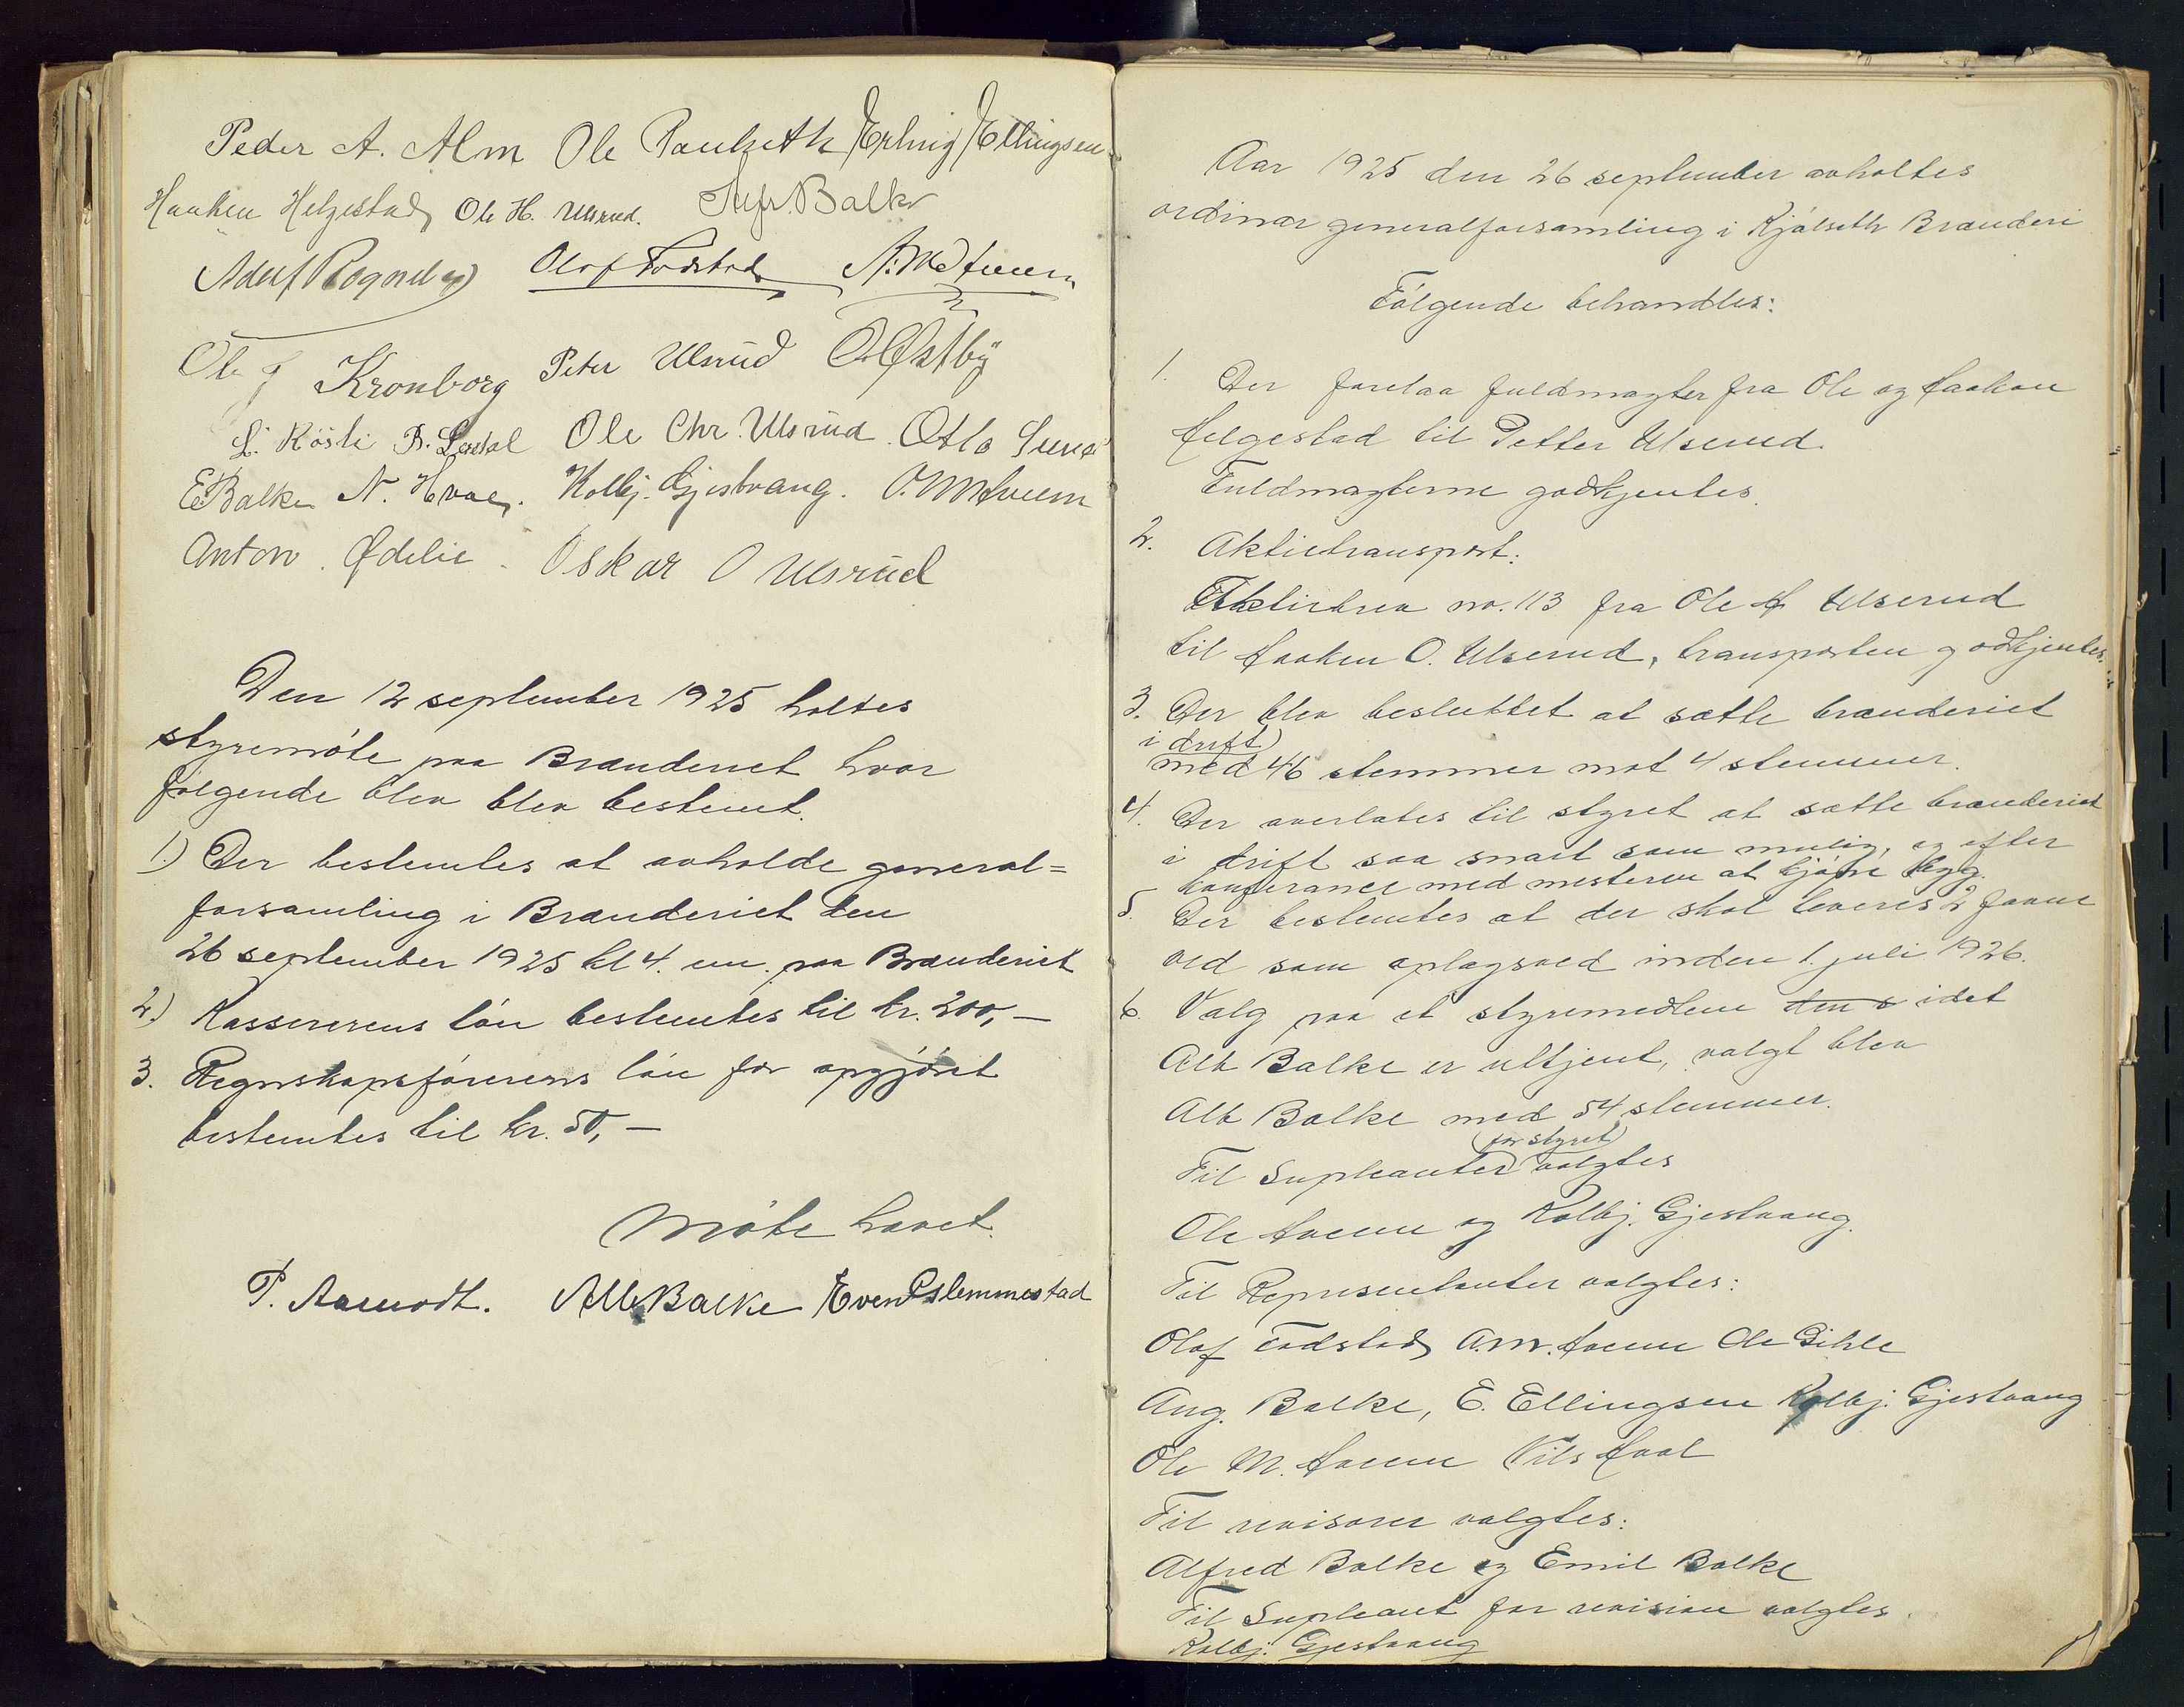 Peder A. Alm Ole Paulseth Erling Ellingsen
Haaken Helgestad Ole H. Ulsrud. Alfr. Balke
Adolf Rognely Olaf Fodstad A. M. Hveem
Ole J Kronborg Peter Ulsrud O. Østby
L. Røsli Ole Chr. Ulsrud. Otto
E Balke N. Hval. Kolbj. Gjestvang. O. M Hveem
Anton. Ødelie. Oskar O Ulsrud
Den 12 september 1925 holtes
styremøte paa Brænderiet hvor
følgende blev blev bestemt.
1.) Der bestemtes at avholde general=
forsamling i Brænderiet den
26 september 1925 kl 4. em. paa Brænderiet
2.) Kassererens løn bestemtes til kr. 200,-
3. Regnskapsførerens løn for opgjøret
bestemtes til kr. 50,-
Møte hævet.
P. Aamodt. Alb Balke Even Slemmestad
Aar 1925 den 26 september avholtes
ordinær generalforsamling i Kjølseth Brænderi
Følgende behandles:
1. Der forelaa fuldmagter fra Ole og Haakon
Helgestad til Petter Ulserud.
Fuldmagterne godkjentes.
2. Aktietransport:
Aktiebrev no. 113 fra Ole H Ulserud
til Haaken O. Ulserud, transporten godkjentes.
3. Der blev besluttet at sætte brænderiet
i drift
med 46 stemmer mot 4 stemmer.
4. Der overlates til styret at sætte brænderiet
i drift saa snart som mulig, og efter
konferance med mesteren at kjøpe bygg.
5. Der bestemtes at der skal leveres 2 favne
ved som oplagsved inden 1. juli 1926.
6. Valg paa et styremedlem den s idet
Alb Balke er uttjent, valgt blev
Alb Balke med 54 stemmer.
(for styret)
Til Supleanter valgtes
Ole Hveem og Kolbj. Gjestvang.
Til Representanter valgtes:
Olaf Fodstad, A.M. Hveem Ole Gihle
Aug. Balke, E. Ellingsen Kolbj. Gjestvang
Ole M. Hveem Nils Hval
Til revisorer valgtes:
Alfred Balke og Emil Balke
Til Supleant for revision valgtes
Kolbj. Gjestvang